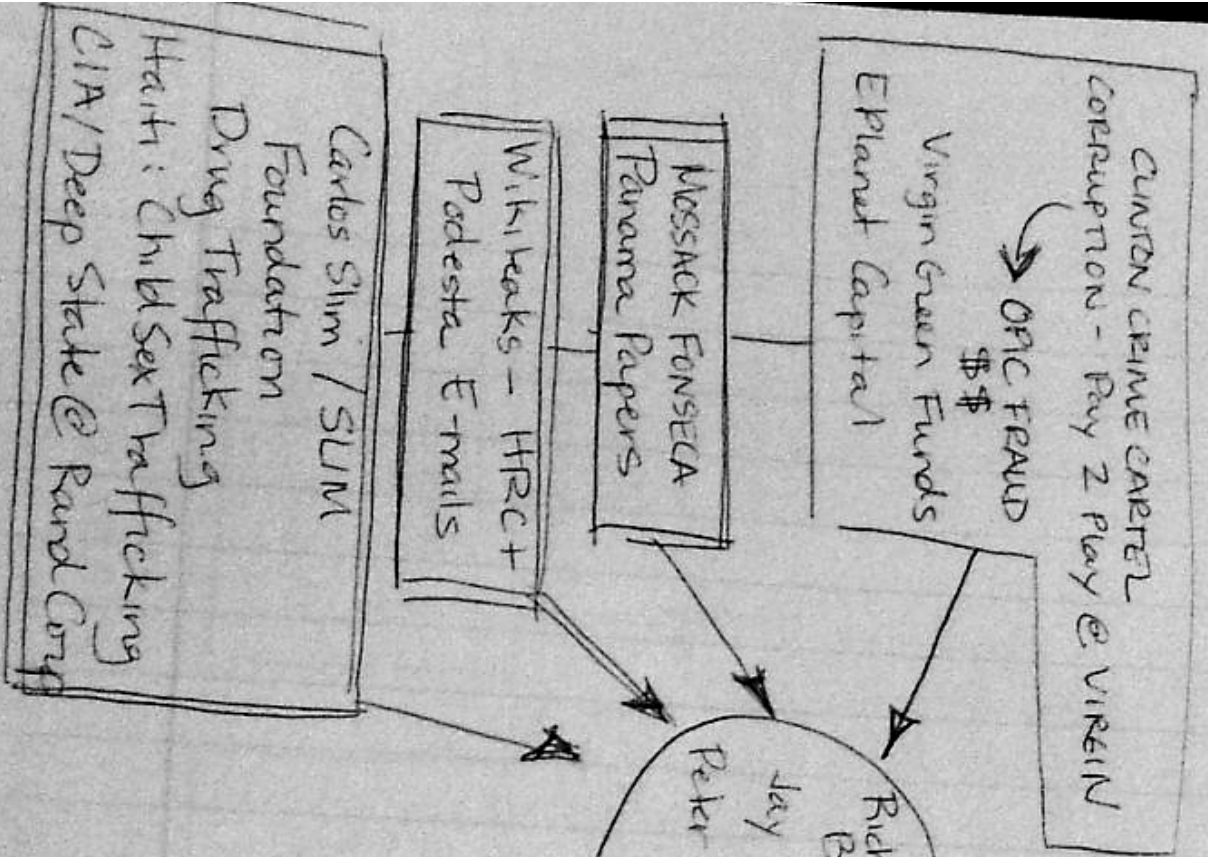 CLINTON CRIME CARTEL
CORRUPTION - Pay 2 Play @ VIRGIN
OPIC FRAUD
$$
Virgin Green Funds
EPlanet Capital
MOSSACK FONSECA
Panama Papers
Wikileaks - HRC +
Podesta E-mails
Carlos Slim / SLIM
Foundation
Drug Trafficking
Haiti: Child Sex Trafficking
CIA/Deep State @ Rand Corp
Rich
B
Jay
Peter